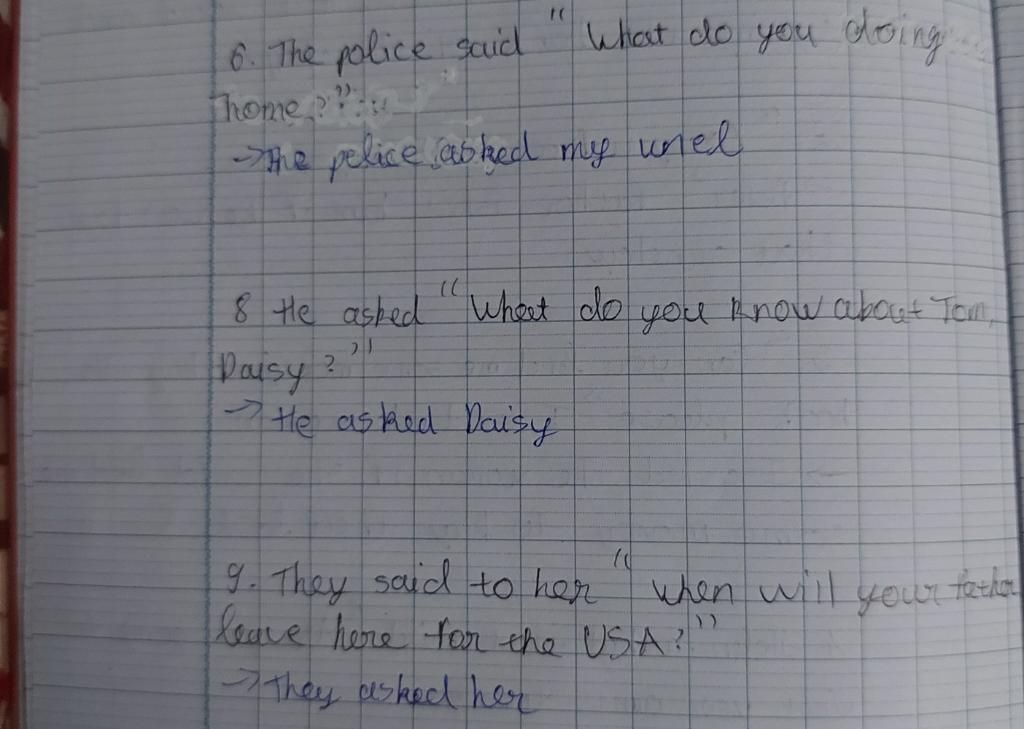 6. The police said " What do you doing
home??"
→ The pelice asked my unel
8 He asked "What do you know about Tom,
Daisy?"
→ He asked Daisy
9. They said to her " when will your father
leave here for the USA?"
→ They asked her